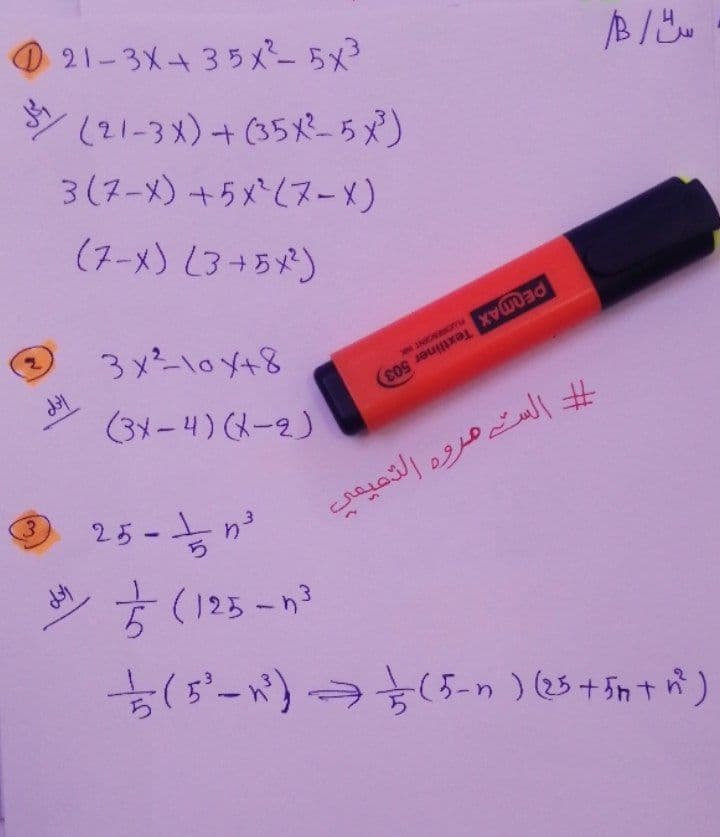 س4 / B
① 21-3x+35x²-5x³
الحل/ (21-3x)+(35x²-5x³)
3(7-x)+5x²(7-x)
(7-x)(3+5x²)
② 3x²-10x+8
الحل/ (3x-4)(x-2)
PENMAX
Textliner 503
FLUORESCENT INK
# الست مروه التميمي
③ 25-1/5 n³
الحل/ 1/5 (125-n³
1/5 (5³-n³) ⇒ 1/5 (5-n)(25+5n+n²)